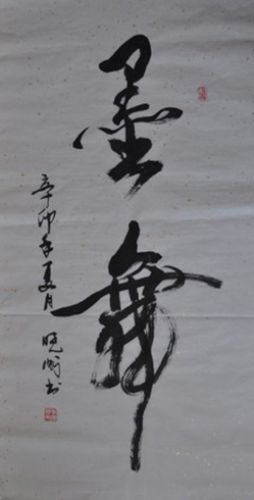 墨舞
辛卯年夏月
晓峰书